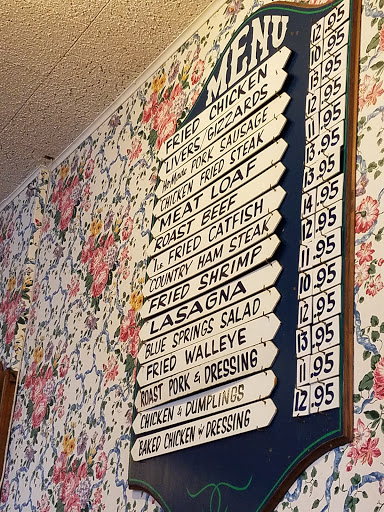 MENU
FRIED CHICKEN 12.95
LIVERS GIZZARDS 10.95
PORK SAUSAGE 13.95
CHICKEN FRIED STEAK 12.95
MEAT LOAF 11.95
ROAST BEEF 13.95
FRIED CATFISH 13.95
COUNTRY HAM STEAK 14.95
FRIED SHRIMP 12.95
LASAGNA 11.95
BLUE SPRINGS SALAD 10.95
FRIED WALLEYE 12.95
ROAST PORK & DRESSING 13.95
CHICKEN & DUMPLINGS 11.95
BAKED CHICKEN W DRESSING 12.95